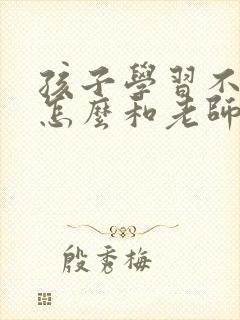 孩子學習不
怎麼和老師
殷秀梅